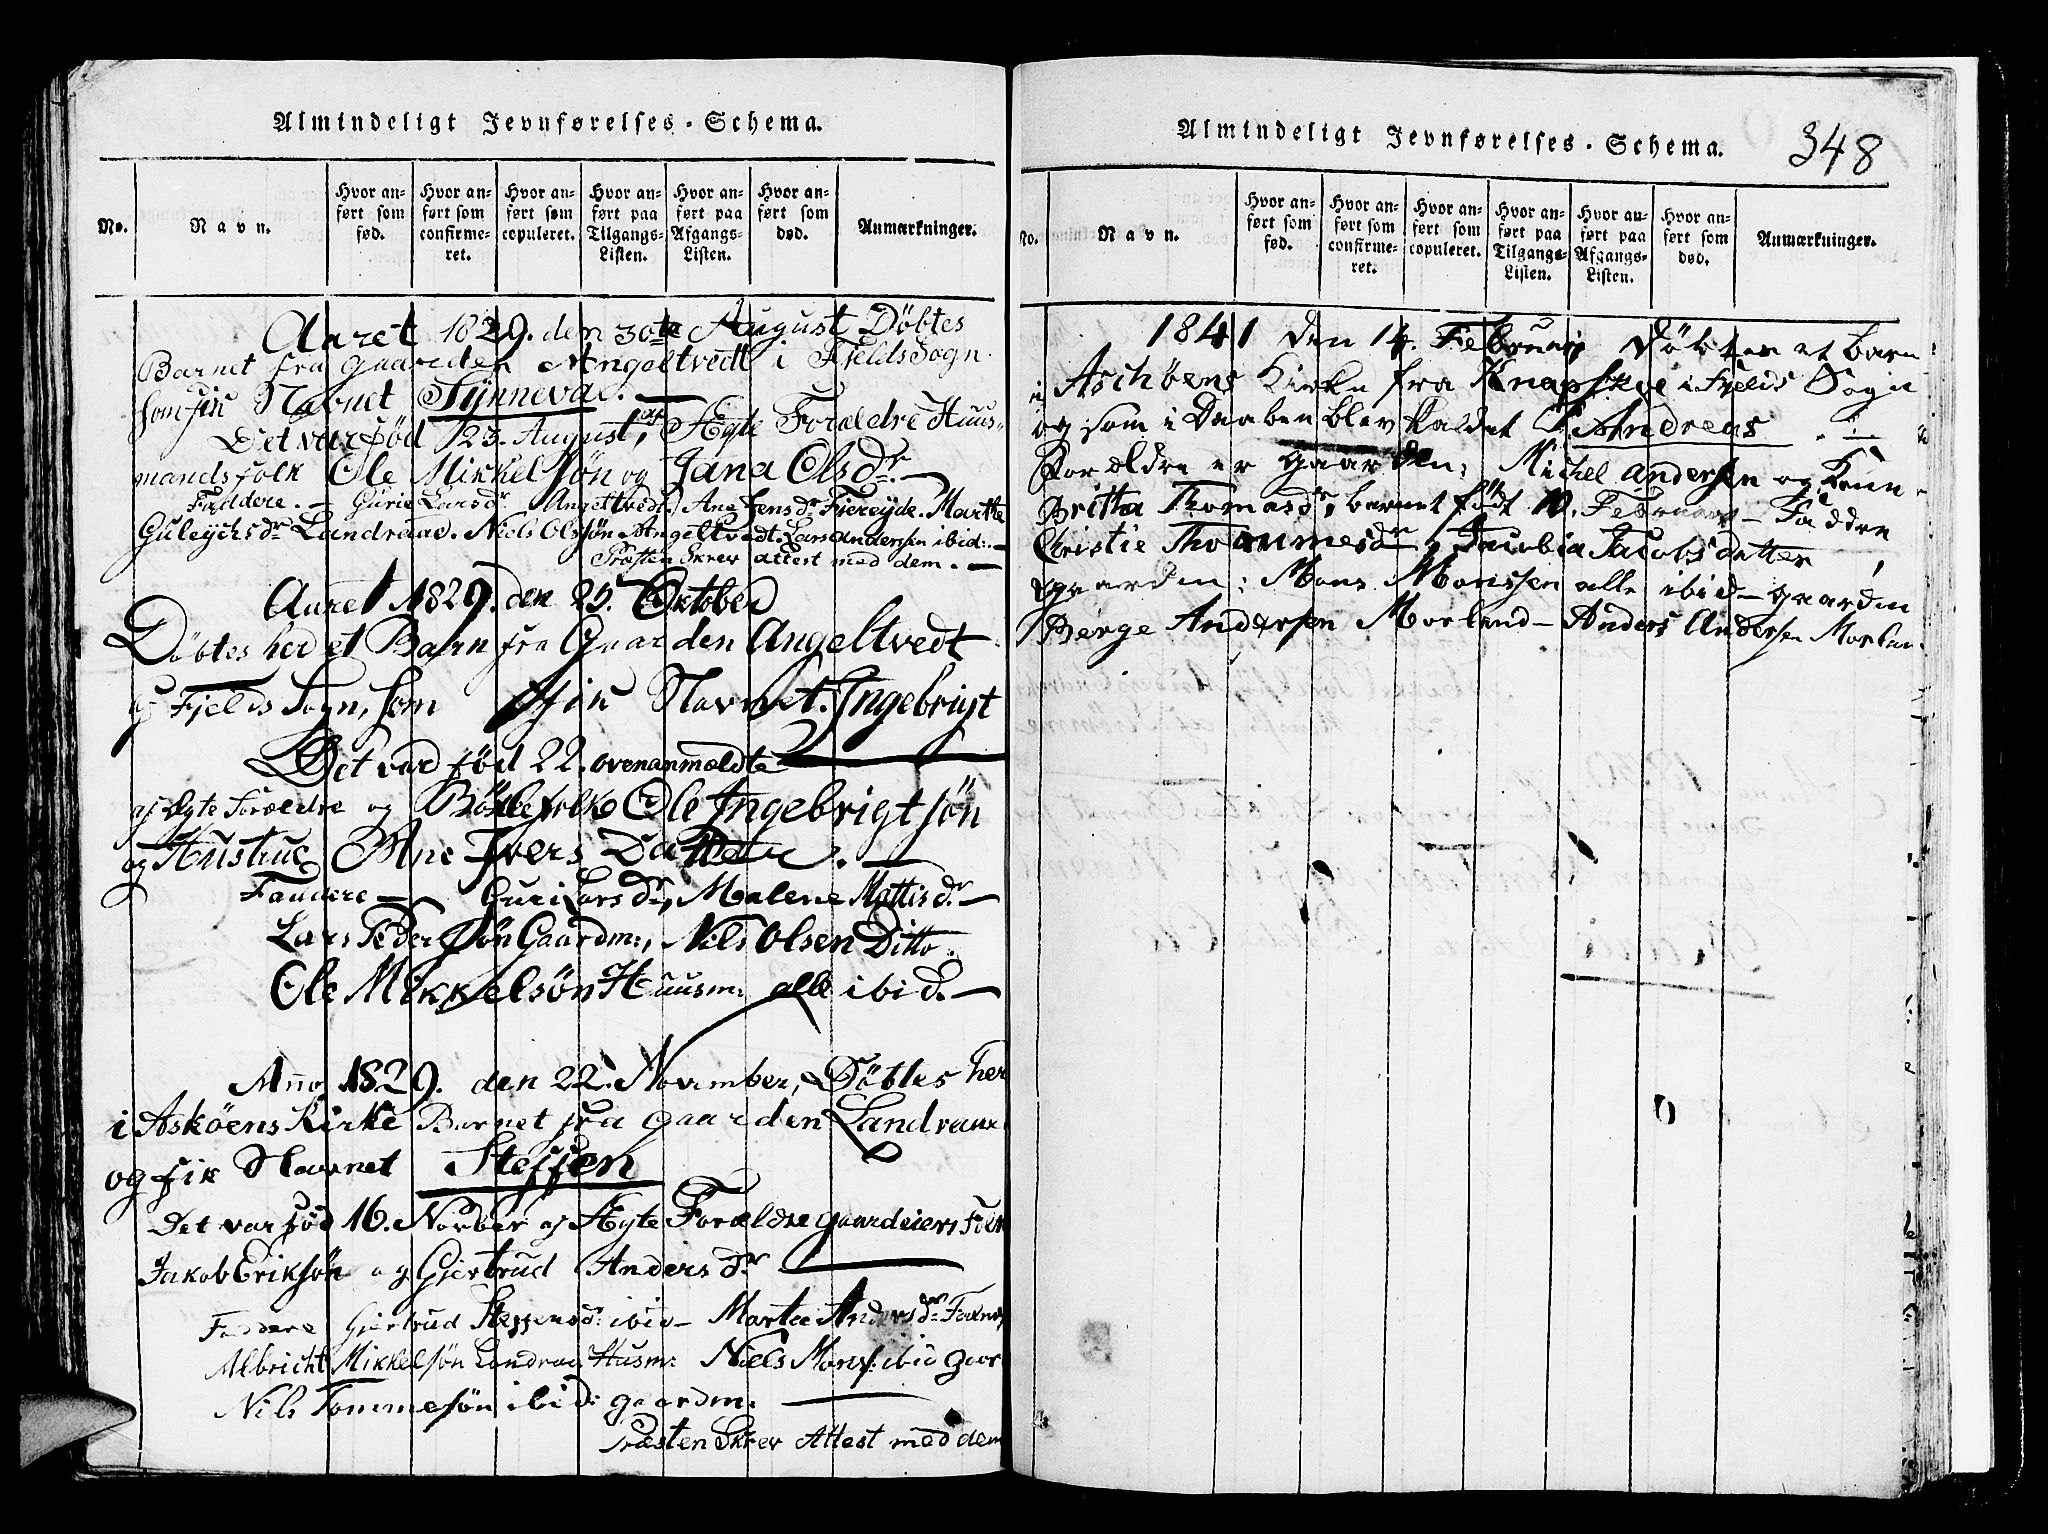 Almindeligt Jevnførelses-Schema.
No.
Navn.
Hvor anført som fød.
Hvor anført som confirmeret.
Hvor anført søm copuleret.
Hvor anført paa Tilgangs-Listen.
Hvor anført paa Afgangs-Listen.
Hvor anført som død.
Anmærkninger.
Aaret 1829. den 30te August Döbtes
Barnet fra Gaarden Angeltvedt i Fjelds Sogn.
som fik Navnet Synneva. —
Det var fød 23. August, af Ægte Forældre Huus-
mandsfolk Ole Mikkelsön og Jana Olsdr. —
Faddere. — Gurie Larsdr Angeltvedt, Ane Jensdr Fiereyde. Marthe
Guleychsdr Landraae. Niels Olssön Angeltvedt. Lars Andersen ibid: —
Præsten Skrev attest med dem. —
Aaret 1829. den 25. Oktober
Döbtes her et Barn fra Gaarden Angeltvedt
af Fjelds Sogn, som fik Navnet. Ingebrigt
Det var fød 22. ovenanmældte
af Ægte Forældre og Böxlefolk Ole Ingebrigtsön
og Hustrue Ane Ivers Datter. —
Faddere — Guri Larsdr, Malene Mattisdr —
Lars Pedersön Gaardm:, Nils Olsen Ditto.
Ole Mikkelsön Huusm: alle ibid. —
Anno 1829. den 22. November, Döbtes her
i Asköens Kirke Barnet fra Gaarden Landraae
og fik Navnet Steffen
Det var fød 16. Novber af Ægte Forældre gaardeiers Folk
Jakob Eriksön og Giertrud Andersdr
Faddere Giertrud Steffensdr: ibid — Marta Andersdr
Albricht Mikkelsön Landraa Husm: Niels Mons: ibid gaar
Nils Tommesön ibid: gaardm.
Præsten Skrev Attest med dem
Almindeligt Jevnførelses-Schema.
348
No.
Navn.
Hvor anført som fød.
Hvor anført som confirmeret.
Hvor anført som copuleret.
Hvor anført paa Tilgangs-Listen.
Hvor anført paa Afgangs-Listen.
Hvor anført som død.
Anmærkninger.
1841 den 14. Februar Döbtes et barn
i Aschöens Kirke fra Knapskoe i Fjelds Sogn
og som i Daaben blev kaldet Andreas
Forældre er gaarden: Michel Andersen og Kone
Britta Thomasdr, barnet födt 10. Februar — Faddre
Christie Thommesdr, Jacobia Jacobsdatter
gaarden: Mons Monssen alle ibid — gaarden
Börge Andersen Morland — Anders Andersen Morlan